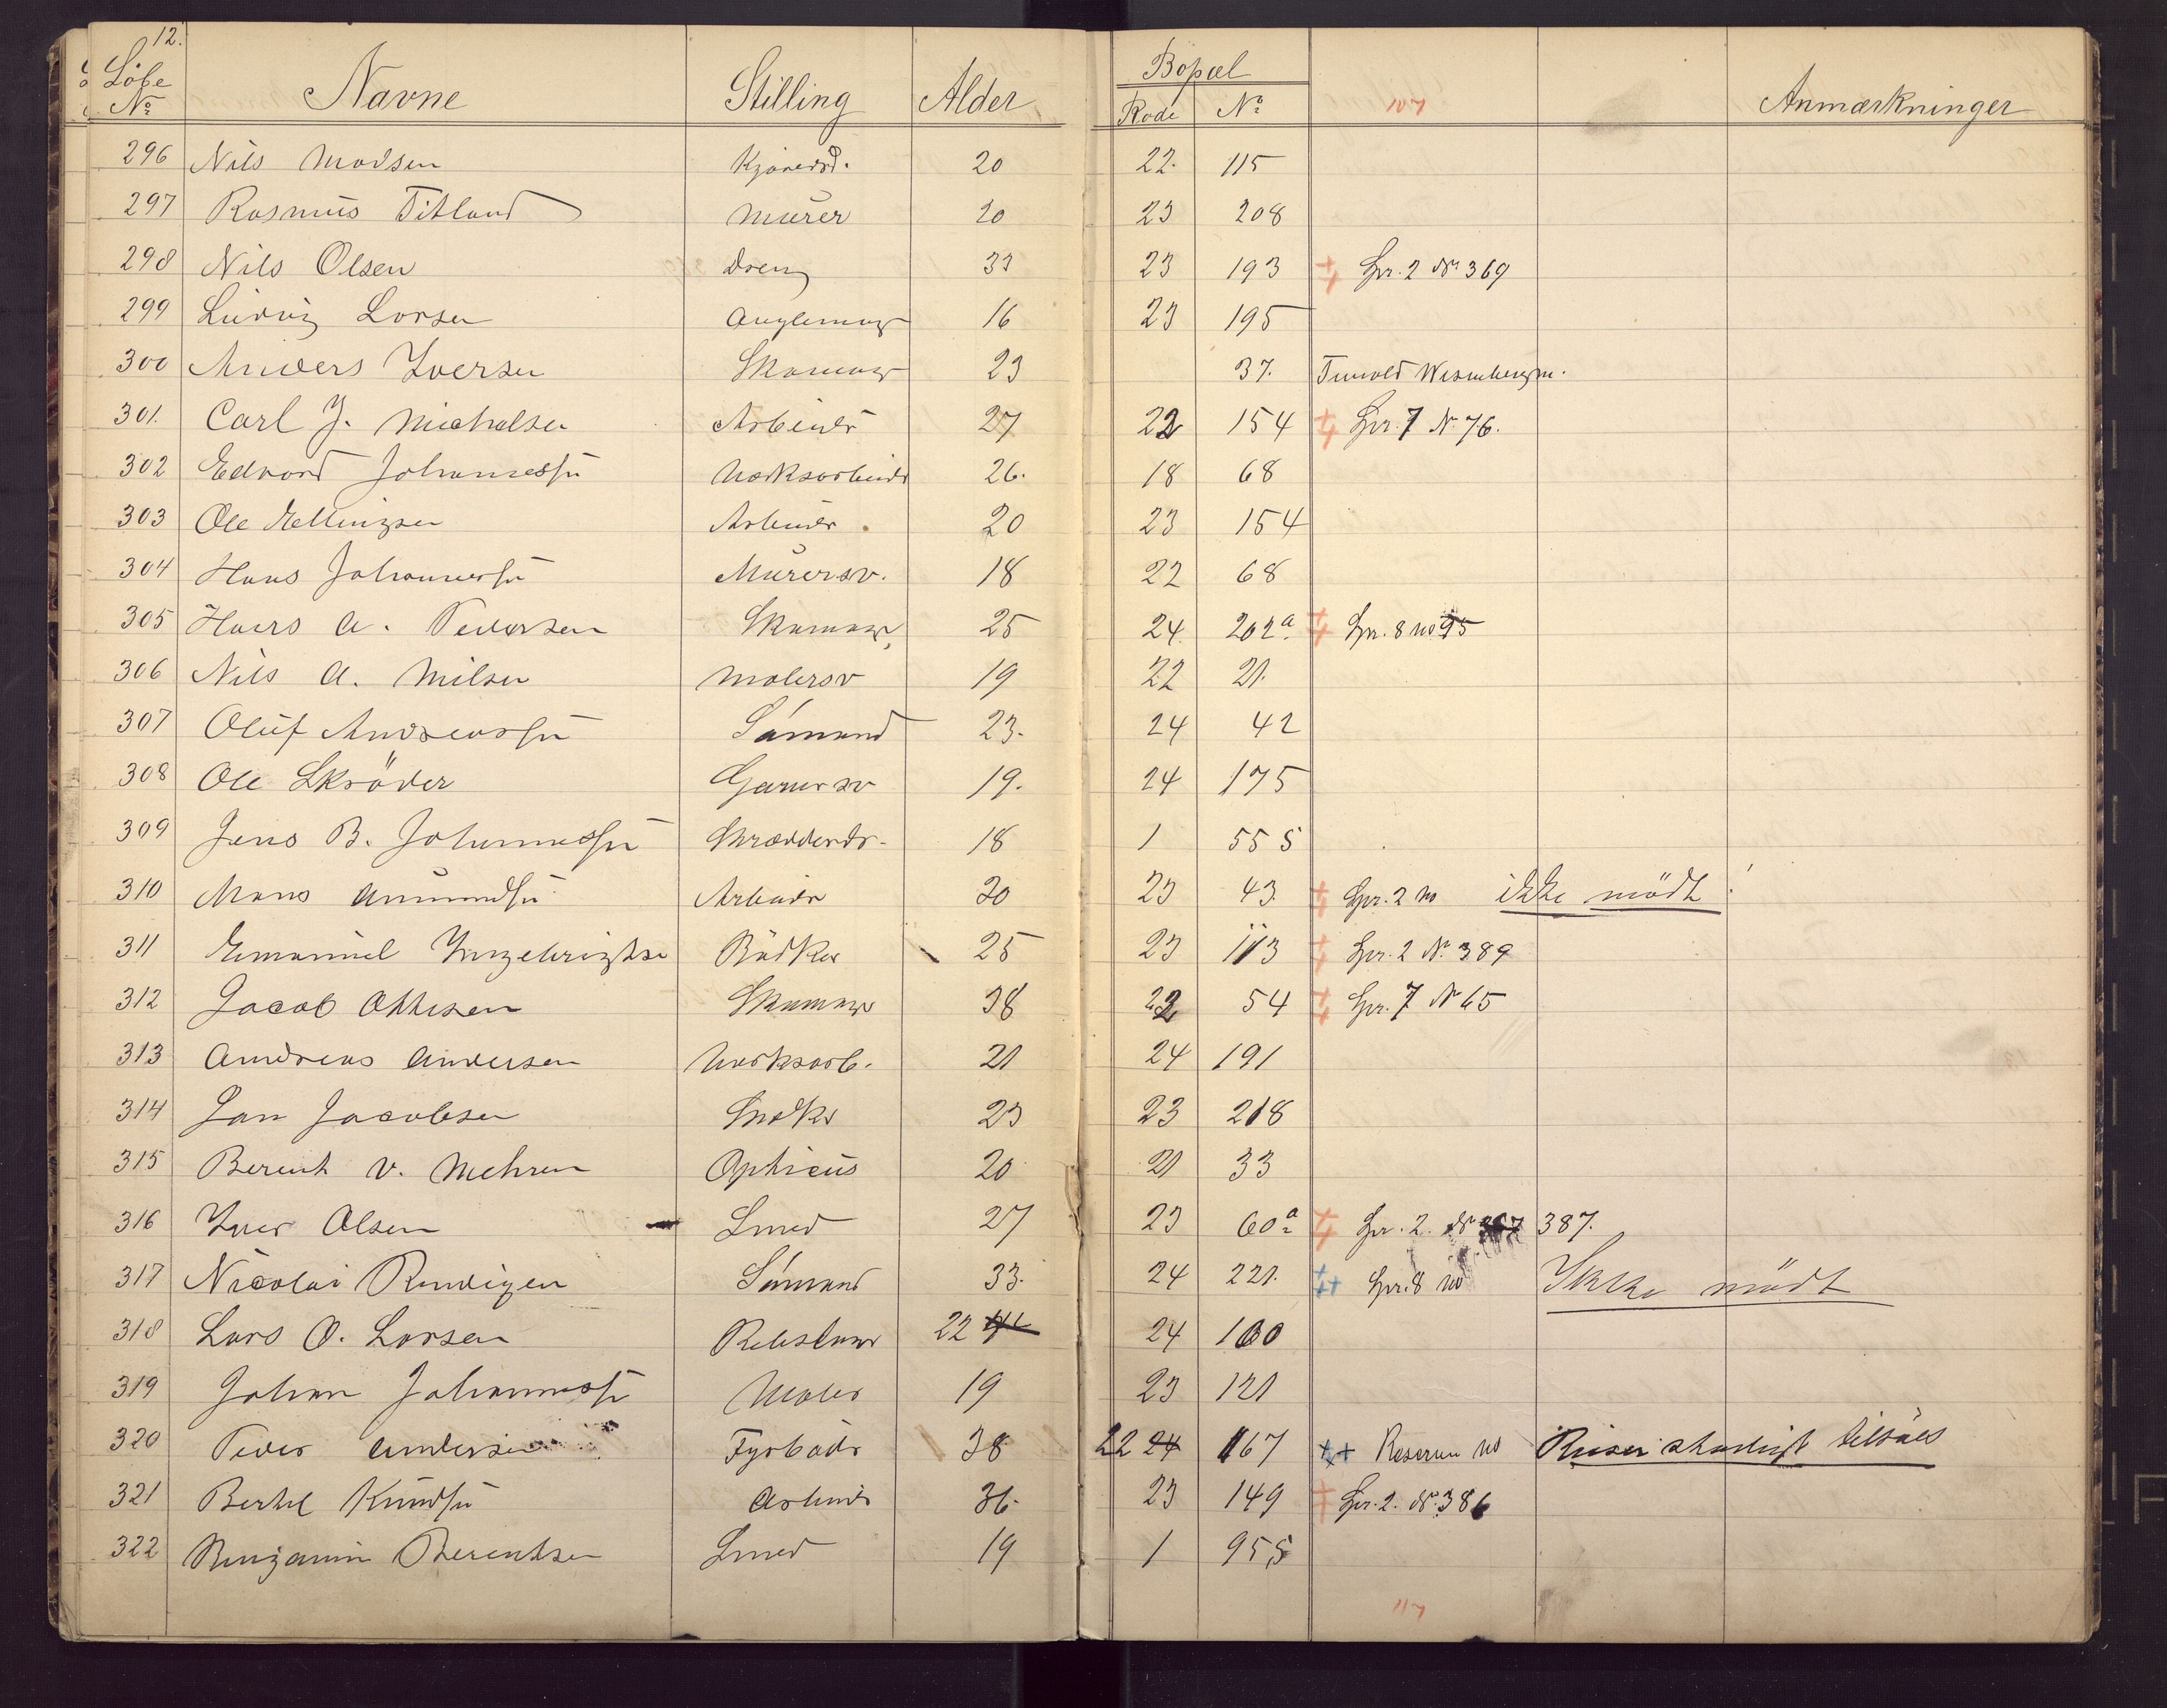 12.
Løbe No Navne Stilling Alder Bopæl Rode No 107 Anmærkninger
296 Nils Madsen Kjøred. 20 22. 115
297 Rasmus Titland Murer 20 23 208
298 Nils Olsen Dreng 33 23 193 Spr. 2 No 369
299 Ludvig Larsen 16 23 195
300 Anders Iversen Skomag 23 37.
301. Carl J. Michelsen Arbeider 27 22 154 Spr. 7 No 76.
302 Edvard Johannessen Værksarbeider 26. 18 68
303 Ole Ellingsen Arbeider 20 23 154
304 Hans Johannessen Murersv. 18 22 68
305 Hans A. Pedersen Skomag 25 24. 202a Spr. 8 no 95
306 Nils A. Milsen Malersv 19 22 21.
307 Oluf Andreassen Sømand 23. 24 42
308 Ole Skrøder Garversv 19. 24 175
309 Jens B. Johannessen Skrædderdr. 18 1 555
310 Mons Amundsen Arbeider 20 23 43. Spr. 2 no ikke mødt!
311 Emanuel Ingebrigtsen Bødker 25 23 113 Spr. 2 No 389
312 Jacob Ottesen Skomager 38 22 54 Spr. 7 No 65
313 Andreas Andersen Værksarb. 21 24 191
314 Jan Jacobsen Snedker 23 23 218
315 Berent v. Mehren Opticus 20 21 33
316 Iver Olsen Smed 27 23 60a Spr. 2. No 387.
317 Nicolai Sømand 33. 24 221. Spr. 8 no Ikke mødt
318 Lars O. Larsen Rebslager 22 24 160
319 Johan Johannessen Maler 19 23 121
320 Peder Andersen Fyrbøder 38 22 24 167 Reserven no Reiser stadigt tilsøes
321 Bertel Knudsen Arbeider 36. 23 149 Spr. 2. No 386
322 Benjamin Berentsen Smed 19 1 955
117